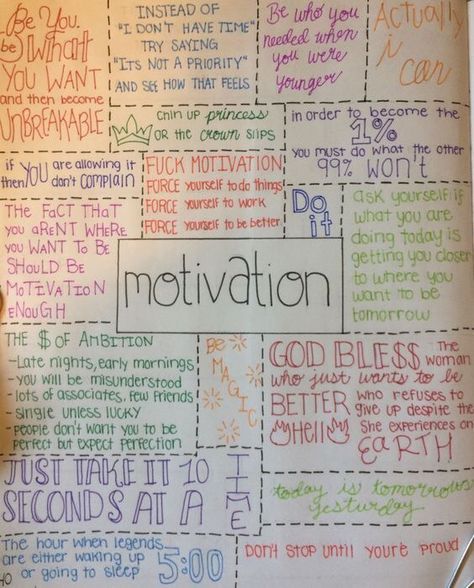 Be You,
be WHAT
YOU WANT
and then become
UNBREAKABLE
INSTEAD OF
"I DON'T HAVE TIME"
TRY SAYING
"ITS NOT A PRIORITY"
AND SEE HOW THAT FEELS
Be who you
needed when
you were
younger
Actually
i
can
chin up princess
or the crown slips
in order to become the
1%
you must do what the other
99% won't
if YOU are allowing it
then don't complain
FUCK MOTIVATION
FORCE yourself to do things
FORCE yourself to work
FORCE yourself to be better
Do
it
ask yourself if
what you are
doing today is
getting you closer
to where you
want to be
tomorrow
THE FACT THAT
you arENT WHERE
you WANT TO BE
SHOULD BE
MOTIVATION
ENOUGH
motivation
THE $ OF AMBITION
-Late nights, early mornings
-you will be misunderstood
-lots of associates, few friends
-single unless lucky
-people don't want you to be
perfect but expect perfection
Be
MAGIC
GOD BLE$$ The woman
who just wants to be
BETTER who refuses to
give up despite the
Hell she experiences on
EARTH
JUST TAKE IT 10
SECONDS AT A
TIME
today is tomorrows
yesturday
The hour when legends
are either waking up
or going to sleep
5:00
Don't stop until you're proud